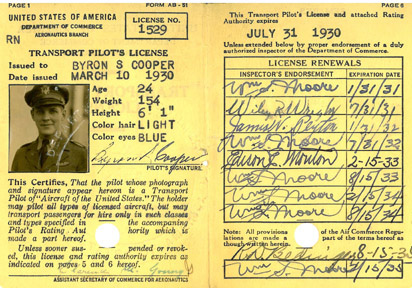 PAGE 1
FORM AB-51
UNITED STATES OF AMERICA
DEPARTMENT OF COMMERCE
AERONAUTICS BRANCH
LICENSE NO.
1529
RN
TRANSPORT PILOT'S LICENSE
Issued to BYRON S COOPER
Date issued MARCH 10 1930
Age 24
Weight 154
Height 6' 1"
Color hair LIGHT
Color eyes BLUE
PILOT'S SIGNATURE
This Certifies, That the pilot whose photograph
and signature appear hereon is a Transport
Pilot of "Aircraft of the United States." The holder
may pilot all types of licensed aircraft, but may
transport passengers for hire only in such classes
and types specified in the accompanying
Pilot's Rating Au hority which is
made a part hereof.
Unless sooner sus pended or revok-
ed, this license and rating authority expires as
indicated on pages 5 and 6 hereof.
ASSISTANT SECRETARY OF COMMERCE FOR AERONAUTICS
PAGE 6
This Transport Pilot's License and attached Rating
Authority expires
JULY 31 1930
Unless extended below by proper endorsement of a duly
authorized inspector of the Department of Commerce.
LICENSE RENEWALS
INSPECTOR'S ENDORSEMENT
EXPIRATION DATE
Wm S. Moore 1/31/31
7/31/31
James H. 1/31/32
Wm S. Moore 7/31/32
2-15-33
Wm S. Moore 8/15/33
Wm S. Moore 2/15/34
Wm S. Moore 8/15/34
Note: All provisions of the Air Commerce Regu-
lations are made a part of the terms hereof as
though written herein.
8-15-35
Wm S. Moore 2/15/35